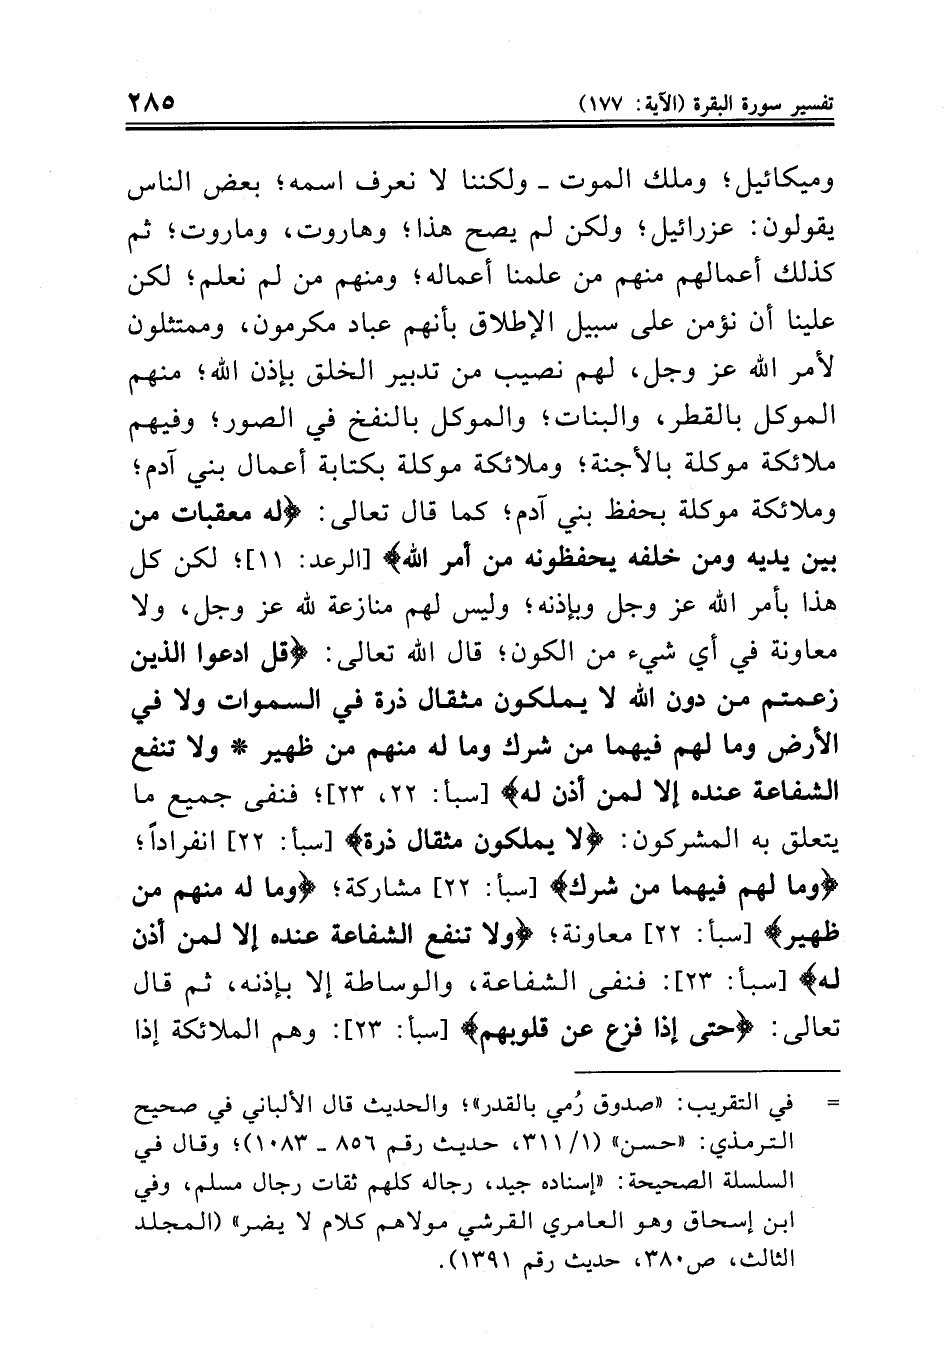 تفسير سورة البقرة (الآية: ١٧٧) ٢٨٥
وميكائيل؛ وملك الموت ـ ولكننا لا نعرف اسمه؛ بعض الناس
يقولون: عزرائيل؛ ولكن لم يصح هذا؛ وهاروت، وماروت؛ ثم
كذلك أعمالهم منهم من علمنا أعماله؛ ومنهم من لم نعلم؛ لكن
علينا أن نؤمن على سبيل الإطلاق بأنهم عباد مكرمون، وممتثلون
لأمر الله عز وجل، لهم نصيب من تدبير الخلق بإذن الله؛ منهم
الموكل بالقطر، والبنات؛ والموكل بالنفخ في الصور؛ وفيهم
ملائكة موكلة بالأجنة؛ وملائكة موكلة بكتابة أعمال بني آدم؛
وملائكة موكلة بحفظ بني آدم؛ كما قال تعالى: ﴿له معقبات من
بين يديه ومن خلفه يحفظونه من أمر الله﴾ [الرعد: ١١]؛ لكن كل
هذا بأمر الله عز وجل وبإذنه؛ وليس لهم منازعة لله عز وجل، ولا
معاونة في أي شيء من الكون؛ قال الله تعالى: ﴿قل ادعوا الذين
زعمتم من دون الله لا يملكون مثقال ذرة في السموات ولا في
الأرض وما لهم فيهما من شرك وما له منهم من ظهير * ولا تنفع
الشفاعة عنده إلا لمن أذن له﴾ [سبأ: ٢٢، ٢٣]؛ فنفى جميع ما
يتعلق به المشركون: ﴿لا يملكون مثقال ذرة﴾ [سبأ: ٢٢] انفراداً؛
﴿وما لهم فيهما من شرك﴾ [سبأ: ٢٢] مشاركة؛ ﴿وما له منهم من
ظهير﴾ [سبأ: ٢٢] معاونة؛ ﴿ولا تنفع الشفاعة عنده إلا لمن أذن
له﴾ [سبأ: ٢٣]: فنفى الشفاعة، والوساطة إلا بإذنه، ثم قال
تعالى: ﴿حتى إذا فزع عن قلوبهم﴾ [سبأ: ٢٣]: وهم الملائكة إذا
= في التقريب: «صدوق رُمي بالقدر»؛ والحديث قال الألباني في صحيح
الترمذي: «حسن» (٣١١/١، حديث رقم ٨٥٦ ـ ١٠٨٣)؛ وقال في
السلسلة الصحيحة: «إسناده جيد، رجاله كلهم ثقات رجال مسلم، وفي
ابن إسحاق وهو العامري القرشي مولاهم كلام لا يضر» (المجلد
الثالث، ص٣٨٠، حديث رقم ١٣٩١).